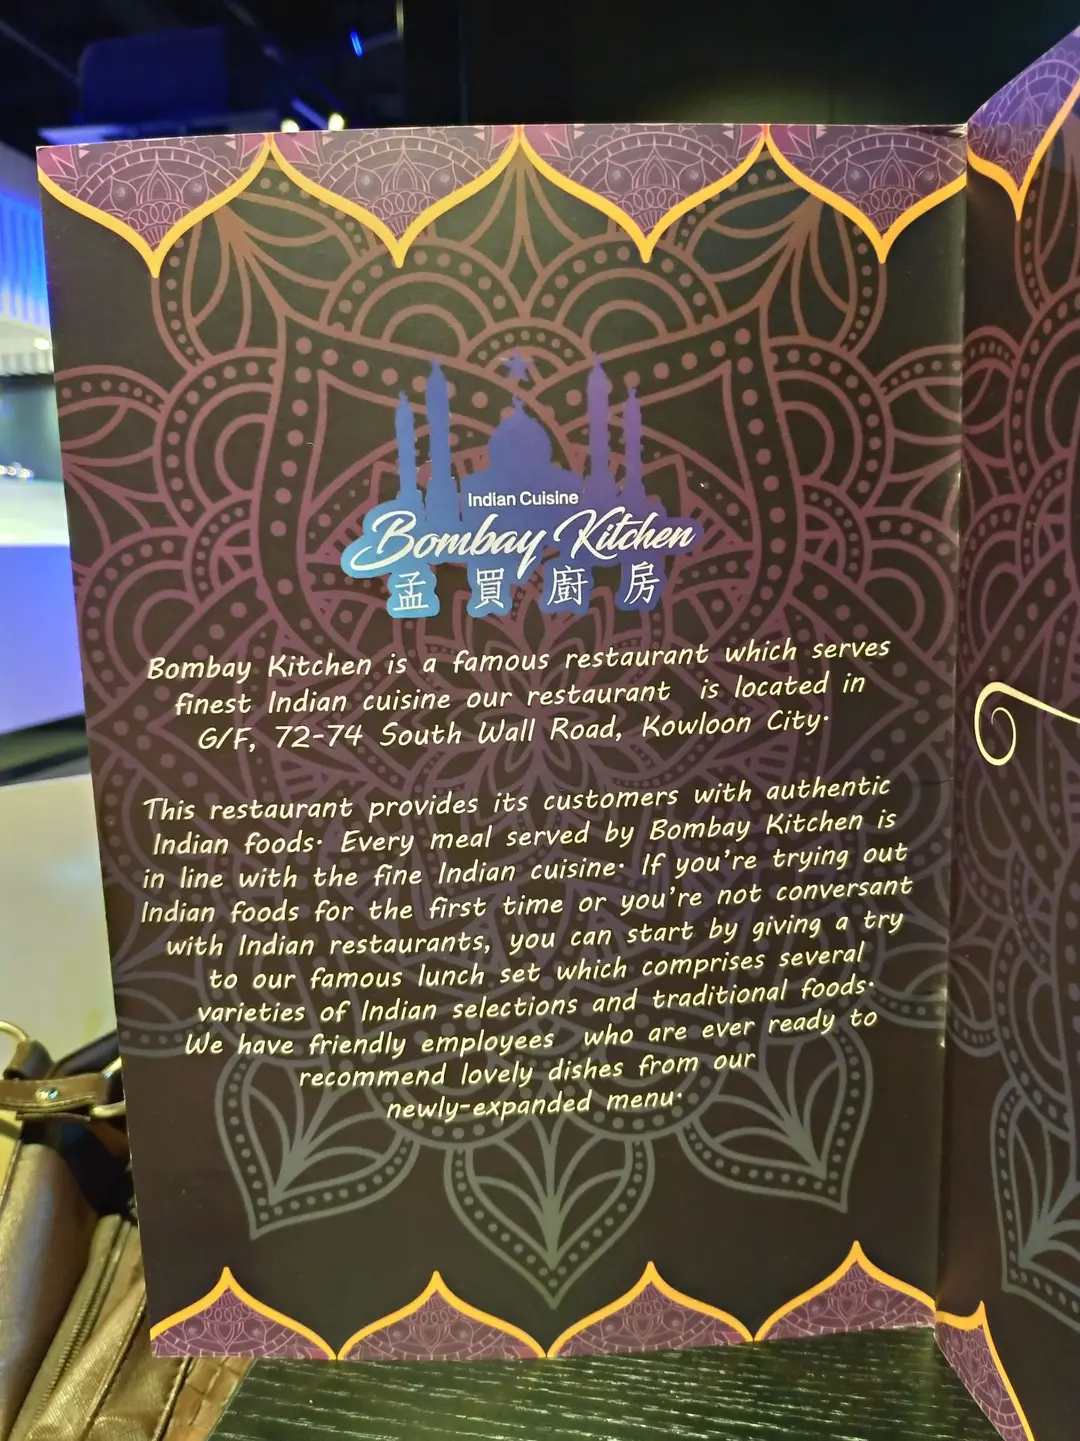 Indian Cuisine
Bombay Kitchen
孟買廚房
Bombay Kitchen is a famous restaurant which serves
finest Indian cuisine our restaurant is located in
G/F, 72-74 South Wall Road, Kowloon City.
This restaurant provides its customers with authentic
Indian foods. Every meal served by Bombay Kitchen is
in line with the fine Indian cuisine. If you're trying out
Indian foods for the first time or you're not conversant
with Indian restaurants, you can start by giving a try
to our famous lunch set which comprises several
varieties of Indian selections and traditional foods.
We have friendly employees who are ever ready to
recommend lovely dishes from our
newly-expanded menu.